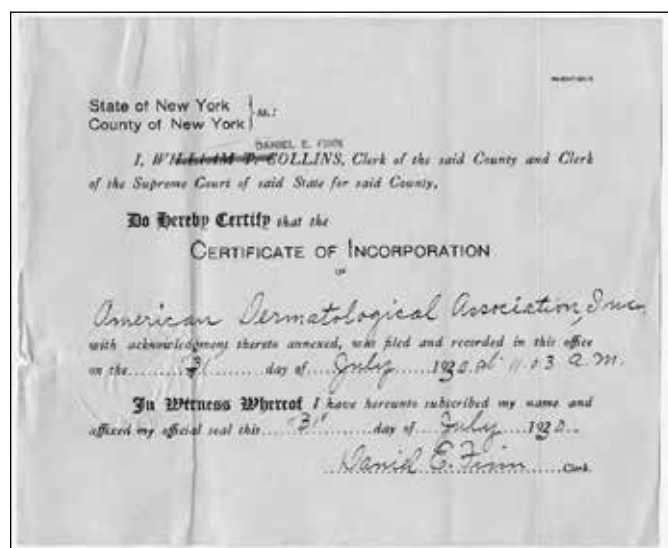 State of New York
County of New York } ss.:
DANIEL E. FINN
I, WILLIAM T. COLLINS, Clerk of the said County and Clerk
of the Supreme Court of said State for said County,
Do Hereby Certify that the
CERTIFICATE OF INCORPORATION
OF
American Dermatological Association, Inc.
with acknowledgment thereto annexed, was filed and recorded in this office
on the 31 day of July 1930 at 11.03 a.m.
In Witness Whereof I have hereunto subscribed my name and
affixed my official seal this 31 day of July 1930
Daniel E. Finn Clerk